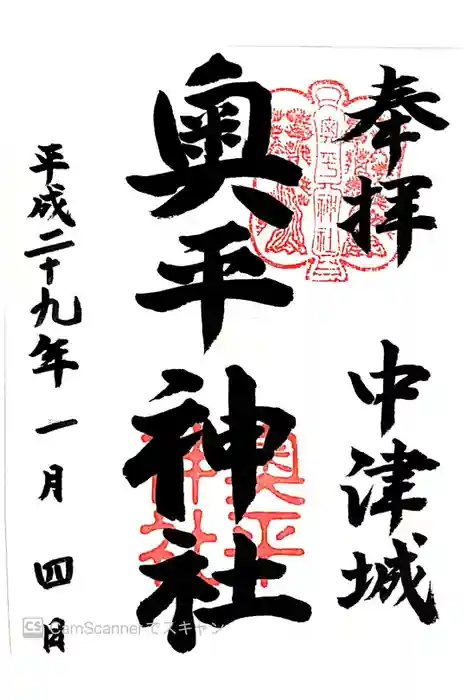 奉拝
中津城
奥平神社
奥平神社
奥平神社
平成二十九年一月四日
CS CamScannerでスキャン